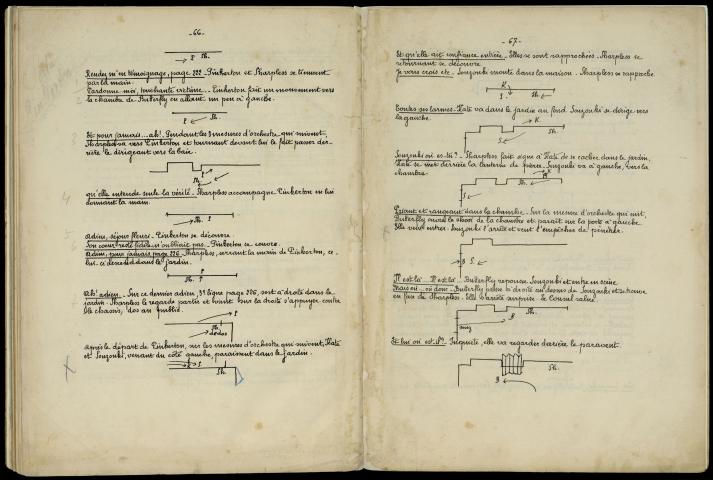 _66_
P Sh.
Rendez m'en témoignage, page 222 _ Pinkerton et Sharpless se tiennent
par la main.
Pardonne moi, touchante victime _ Pinkerton fait un mouvement vers
la chambre de Butterfly en allant un peu à gauche.
P Sh.
Et pour jamais...ah! Pendant les 8 mesures d'orchestre qui suivent,
Sharpless va vers Pinkerton et tournant devant lui le fait passer der-
rière le dirigeant vers la baie.
P
Sh.
qu'elle entende seule la vérité _ Sharpless accompagne Pinkerton en lui
donnant la main.
Sh. P
Adieu, séjour fleuri _ Pinkerton se découvre.
Son cœur resté fidèle, ne m'oubliait pas _ Pinkerton se couvre.
Adieu, pour jamais, page 226 Sharpless, serrant la main de Pinkerton, ce-
lui-ci descend dans le jardin.
P
Sh.
Ah! adieu _ Sur ce dernier adieu, 3e ligne page 226, sort à droite dans le
jardin. Sharpless le regarde partir et vient vers la droite s'appuyer contre
le chassis, dos au public.
P
Sh.
de dos
Après le départ de Pinkerton, sur les mesures d'orchestre qui suivent, Kate
et Souzouki, venant du côté gauche, paraissent dans le jardin.
Sh.
_67_
Et qu'elle ait confiance entière _ Elles se sont rapprochées. Sharpless se
retournant se découvre.
Je vous crois etc _ Souzouki monte dans la maison. Sharpless se rapproche.
K
S Sh.
Toutes ses larmes _ Kate va dans le jardin au fond Souzouki se dirige vers
la gauche.
K.
S. Sh.
Souzouki où es-tu? _ Sharpless fait signe à Kate de se cacher dans le jardin,
Kate se met derrière la lanterne de pierre. Souzouki va à gauche, vers la
chambre.
K
S Sh.
Priant et rangeant dans la chambre _ Sur la mesure d'orchestre qui suit,
Butterfly ouvre le store de la chambre et paraît sur la porte à gauche.
Elle veut entrer. Souzouki l'arrête et veut l'empêcher de pénétrer.
B S.
Il est là... Il est là _ Butterfly repousse Souzouki et entre en scène.
Mais où _ où donc _ Butterfly passe à droite au dessus de Souzouki et se trouve
en face de Sharpless. Elle s'arrête surprise. Le Consul salue.
B Sh.
Et lui où est-il? _ Inquiète, elle va regarder derrière le paravent.
Sh.
B